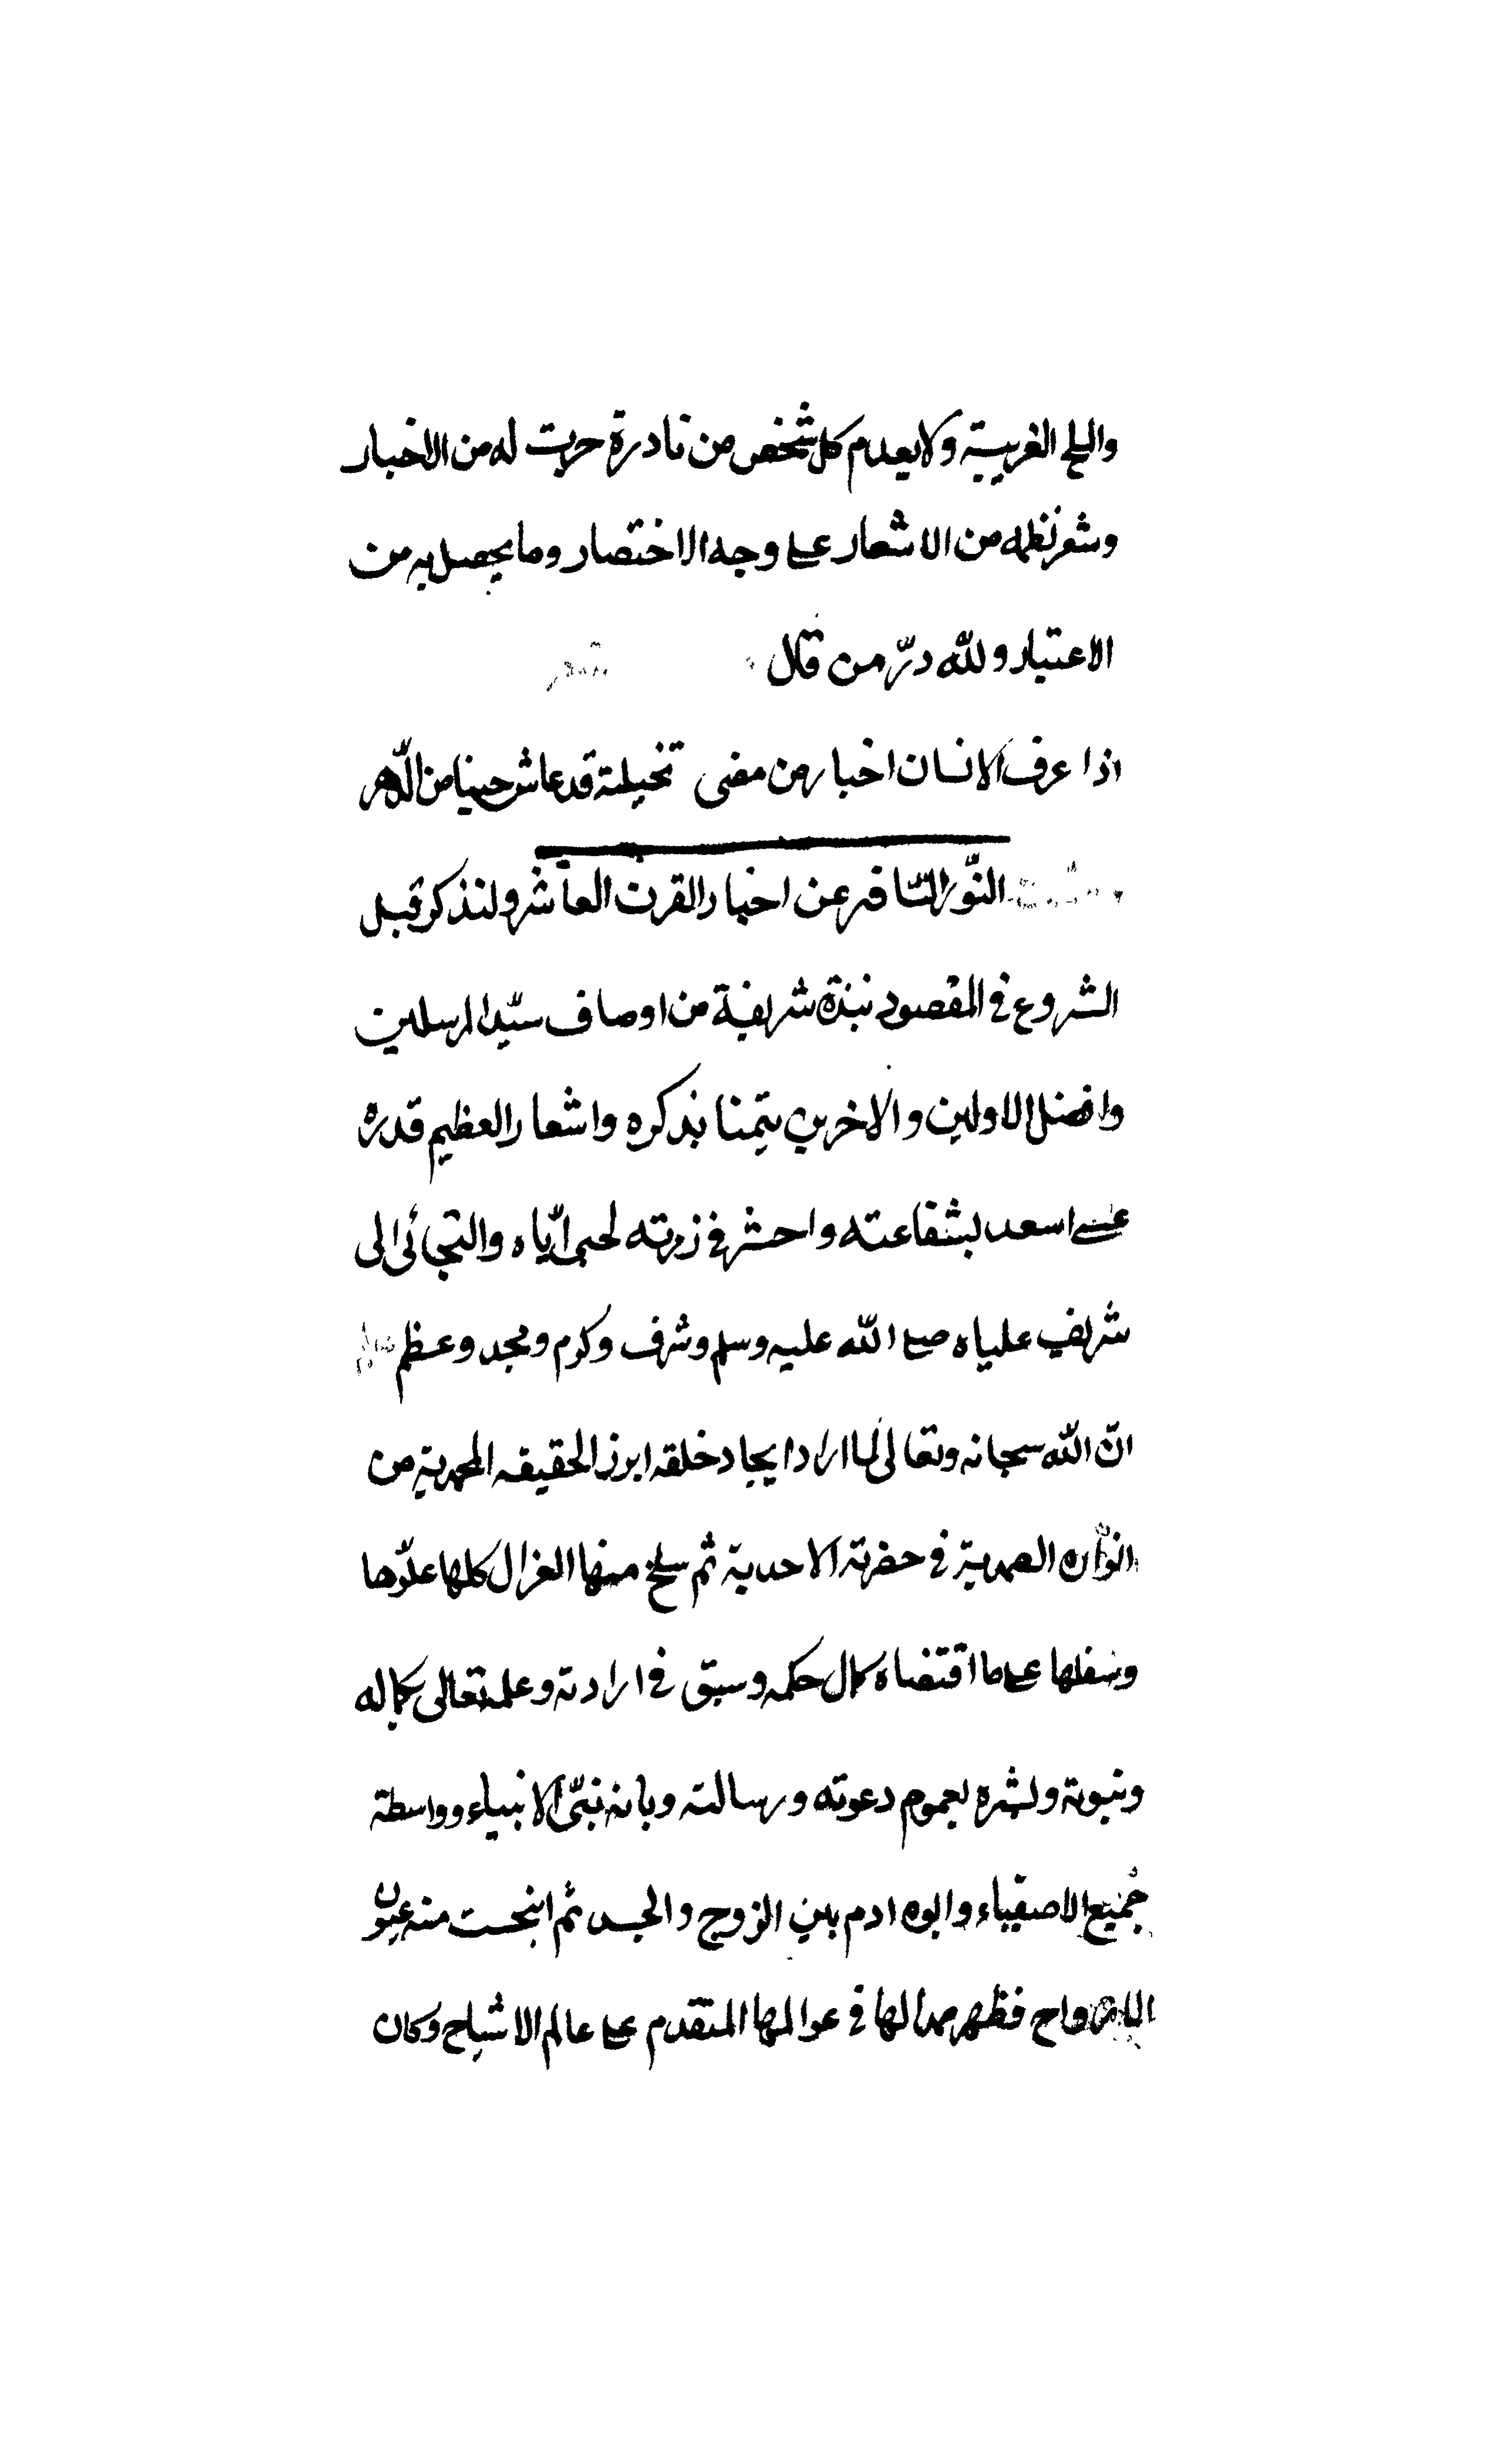 والملح الغريبة ولا يعدم كل شخص من نادرة جرت له من الاخبار
وشعر نظمه من الاشعار على وجه الاختصار وما يحصل به من
الاعتبار ولله درّ من قال شعر
اذا عرف الانسان اخبار من مضى تخيلته قد عاش حينا من الدّهر
النّور السّافر عن اخبار القرن العاشر ولنذكر قبل
الشروع في المقصود نبذة شريفة من اوصاف سيّد المرسلين
وافضل الاولين والاخرين تيمنا بذكره واشعار العظيم قدره
عسى اسعد بشفاعته واحشر في زمرته لحبى ايّاه والتجائى الى
شريف علياه صلى الله عليه وسلم وشرف وكرم ومجد وعظم
انّ الله سبحانه وتعالى لما اراد ايجاد خلقه ابرز الحقيقه المحمدية من
انواره الصمدية في حضرته الاحدية ثم سلخ منها الغزال كلها علوّها
وسفلها على ما اقتضاه كمال حكمه وسبق في ارادته وعلمه تعالى بكماله
ونبوته وبشره بعموم دعوته ورسالته وبانه نبىّ الانبياء وواسطة
جميع الاصفياء وابوه ادم بين الروح والجسد ثم انبجست منه عيون
الارواح فظهر ممدا لها في عوالمها المتقدم على عالم الاشباح وكان